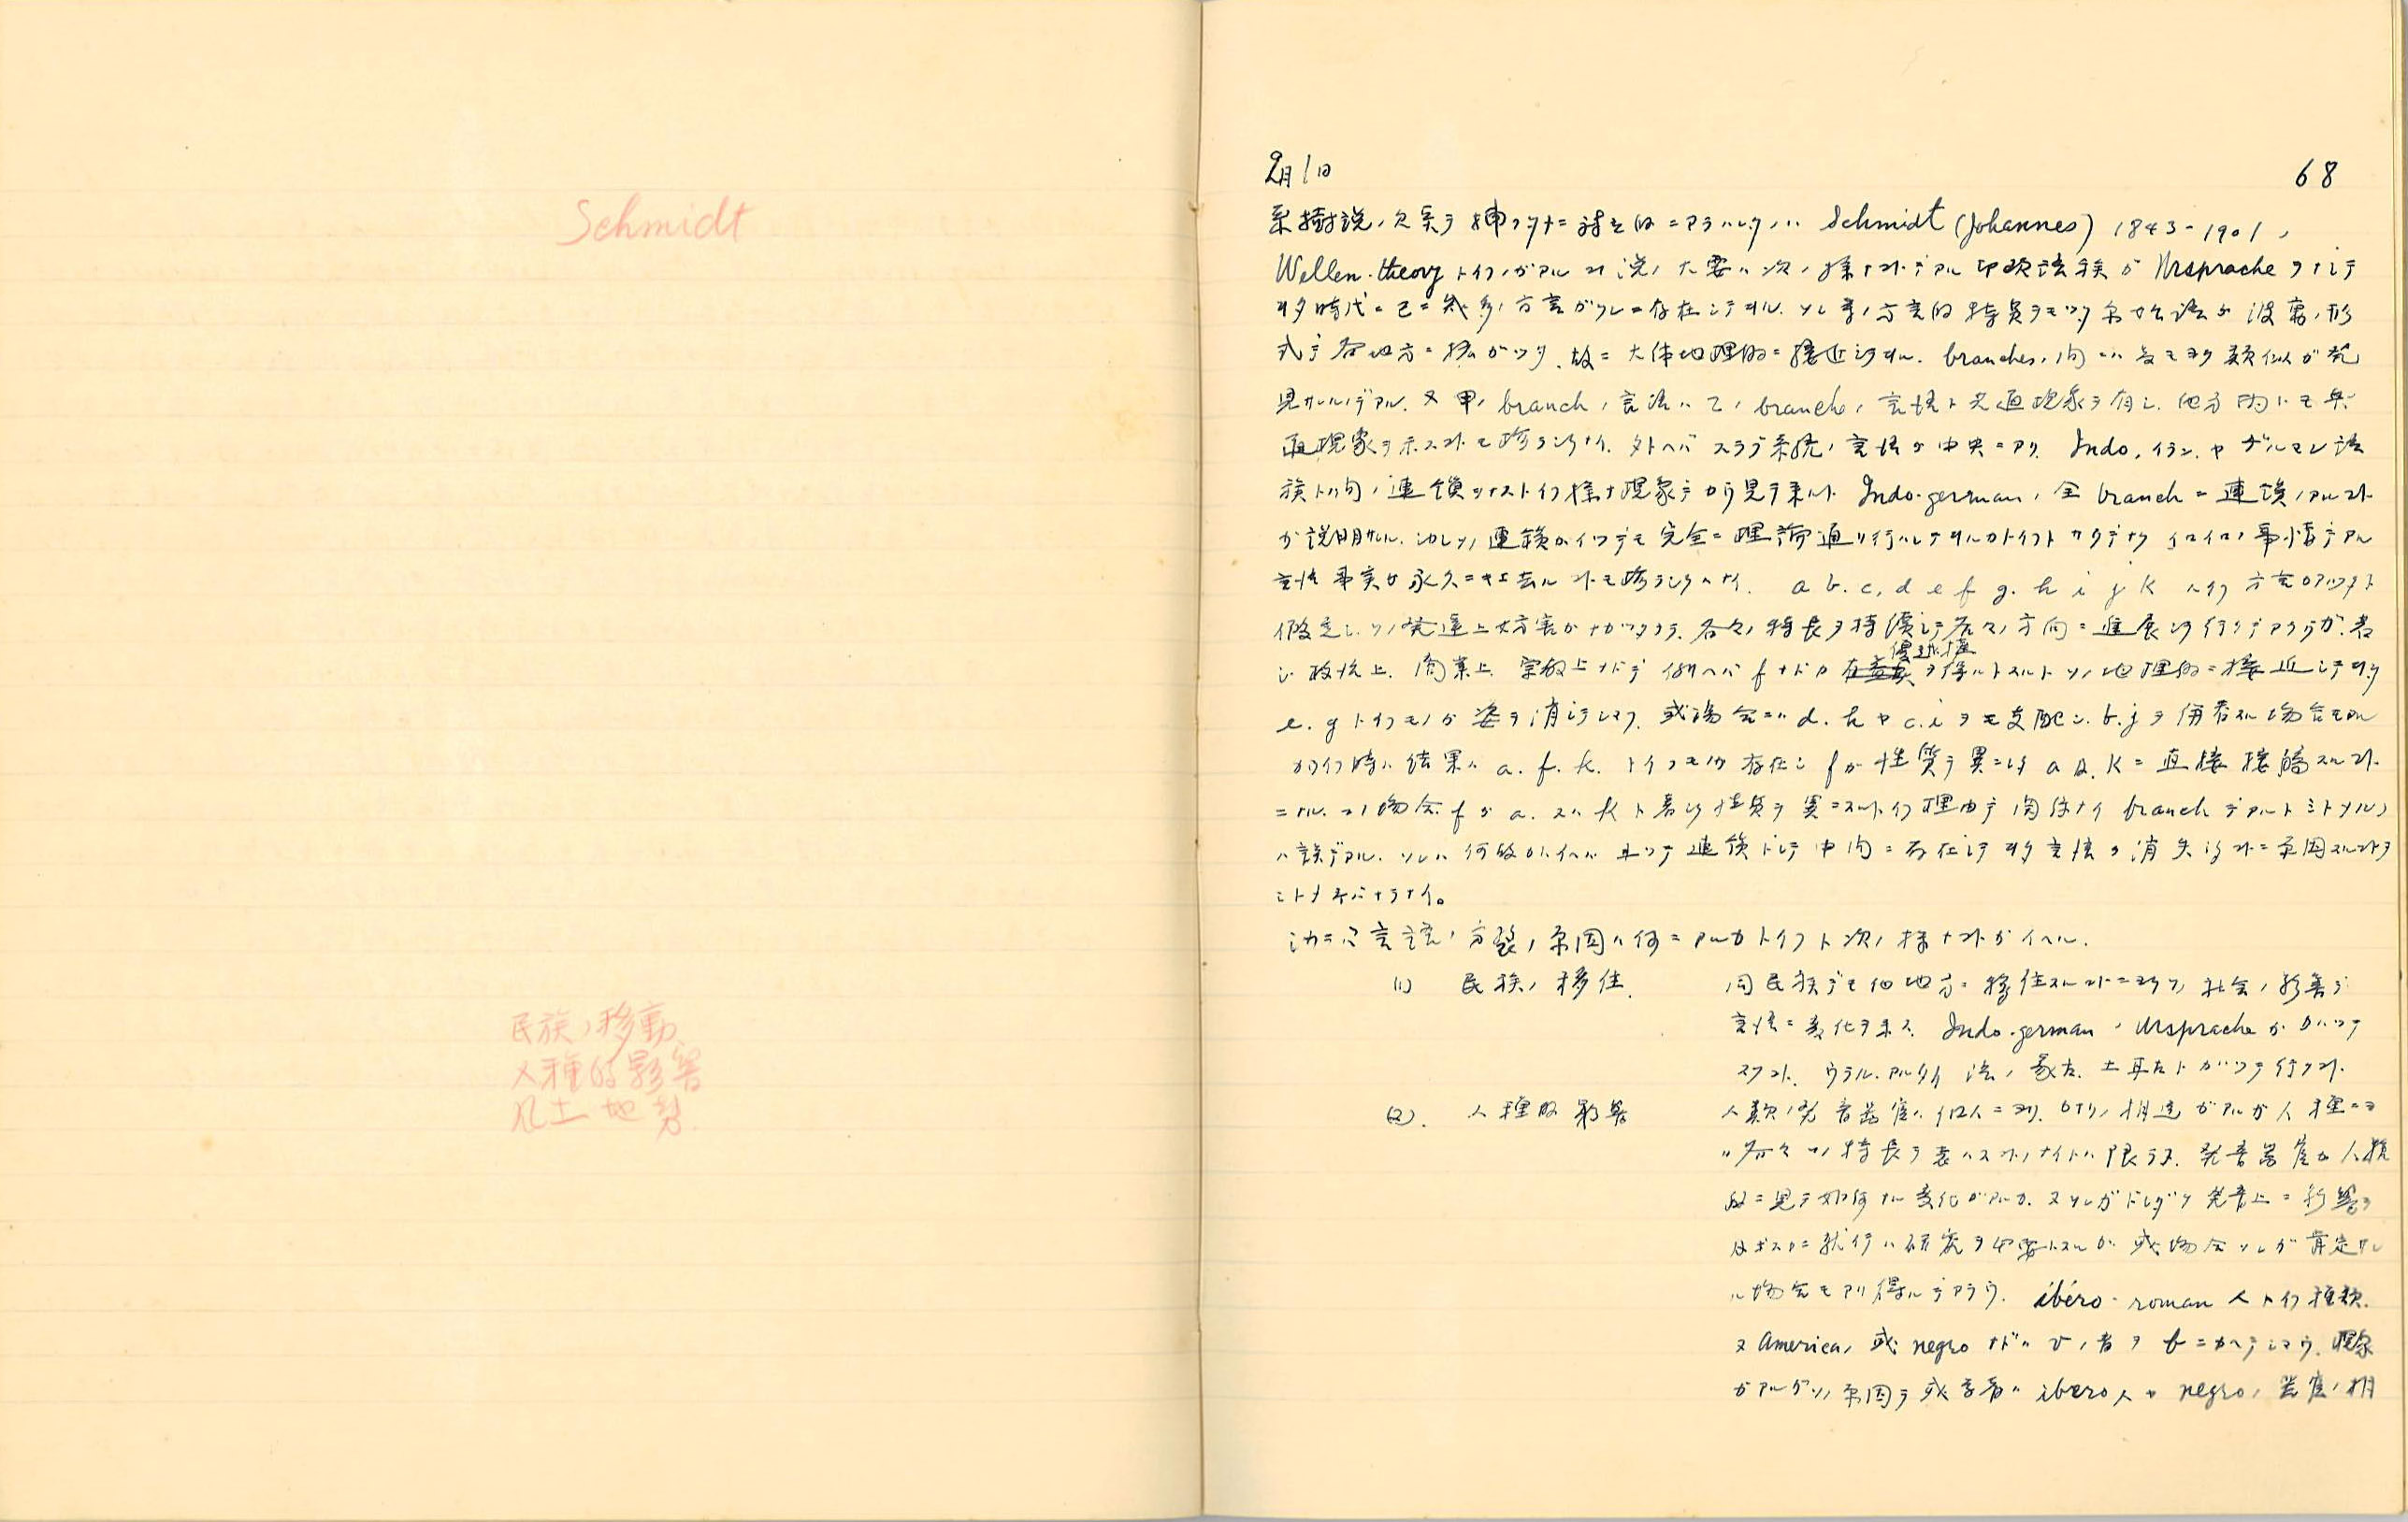 Schmidt
民族ノ移動
人種的影響
風土 地勢
2月1日
68
系樹説ノ欠 ヲ補フタメニ Schmidt (Johannes) 1843-1901ノ
Wellen-theory トイフノガアル コノ説ノ大要ハ次ノ様ナコトデアル 印欧語族ガ Ursprache ヲナシテ
ヰタ時代ニ已ニ幾多ノ方言ガソレニ存在シテヰル. ソレ等ノ方言的特 ヲモツタ ガ波 ノ形
式デ各地方ニ拡ガツタ. 故ニ大体地理的ニ接近シタ branches ノ間ニハ 最モヨク類似ガ発
見サレルノデアル. 又甲ノ branch ノ言語ハ乙ノ branch ノ言語ト共通現象ヲ有シ. 他方丙トモ共
通現象ヲ示スコトモ珍ラシクナイ. 例ヘバ スラブ系統ノ言語ガ中央ニアリ Indo, イラン, ヤゲルマン語
族トノ間ノ連鎖ヲナストイフ様ナ現象デカラ見テ来ルト Indo-german ノ全 branch ニ連鎖ノアルコト
ガ説明サレル. シカシソノ連鎖ガイツデモ完全ニ理論通リ行ハレテヰルカトイフト サウデナク イロイロノ事情デアル
言語事実ガ永久ニキエ去ルコトモ珍ラシクハナイ. a b. c. d e f g. h i j k トイフ方言ガアツタト
仮定シソノ発達上妨害ガナカツタラ. 各々ノ特長ヲ持続シテ各々ノ方向ニ進展シタ行クデアラウガ. 若
シ政治上. 商業上. 宗教上ナドデ 例ヘバ f ナドガ 優越権 ヲ得ルトスルト ソノ地理的ニ接近シテヰタ
e. g トイフモノガ姿ヲ消シテシマフ. 或場合ニハ d. h ヤ c. i ヲモ支配シ. b. j ヲ併呑スル場合モアル
カウイフ時ハ結果ハ a. f. k. トイフモノガ存在シ f ガ性質ヲ異ニシタ a 及 k ニ直接接触スルコト
ニナル. コノ場合 f ガ a. 又ハ k ト著シク性質ヲ異ニスルトイフ理由デ関係ナイ branch デアルト ミトメルノ
ハ誤デアル. ソレハ何故カトイヘバ 且ツテ連鎖トシテ中間ニ存在シテヰタ言語ガ消失シタコトニ原因スルコトヲ
ミトメネバナラナイ。
シカラバ言語ノ分裂ノ原因ハ何ニアルカトイフト次ノ様ナコトガイヘル.
(1) 民族ノ移住. 同民族デモ他地方ニ移住スルコトニヨリソノ社会ノ影響デ
言語ニ変化ヲ来ス. Indo-german ノ Ursprache ガカハツテ
コト. ウラル. アルタイ 語ノ蒙古. 土耳古トカハツテ行クコト.
(2). 人種的影響 人類ノ発音器官ハ個人ニヨリ. ノ相違ガアルガ人種ニヨ
各々ソノ特長ヲ表ハスコトノナイトハ限ラヌ. 発音器官ガ人類
的ニ見テ如何ナル変化ガアルカ. 又ソレガドレダケ発音上ニ影響ヲ
及ボスカニ就テハ研究ヲ必要トスルガ 或場合ソレガ肯定サレ
ル場合モアリ得ルデアラウ. ibéro-roman 人トイフ種類.
又 America ノ或 negro ナドハ v ノ音ヲ b ニカヘテシマウ. 現象
ガアルガソノ原因ヲ或学者ハ ibero人ヤ negro ノ器官ノ相